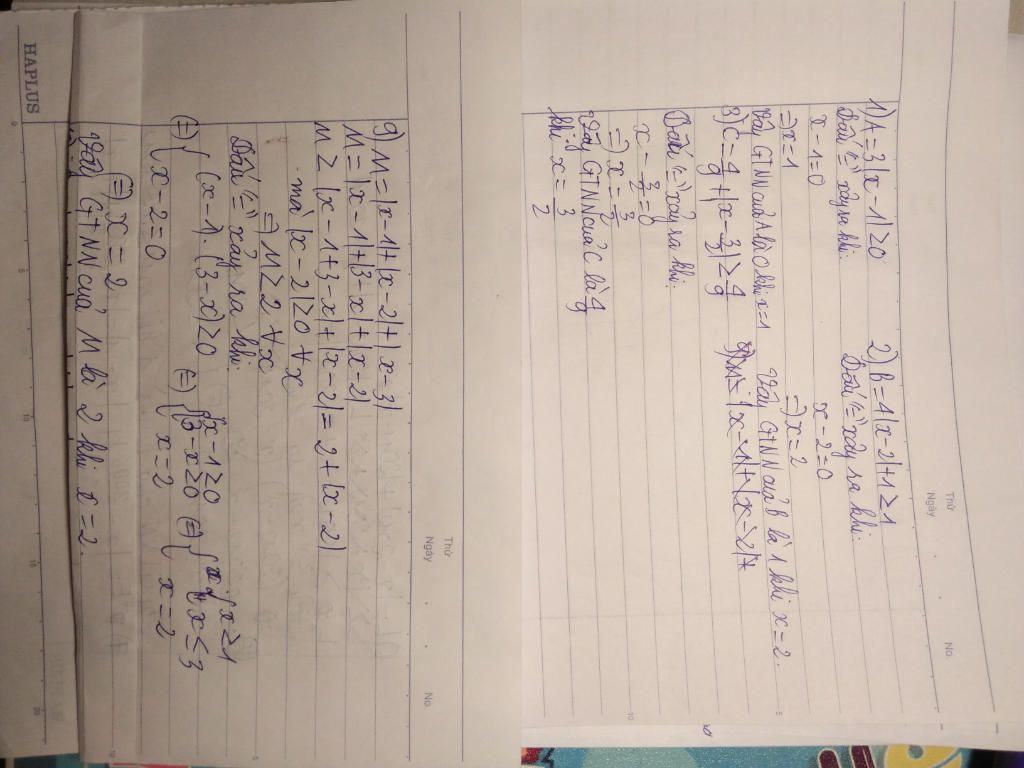 Thứ
Ngày
No.
1) A = 3|x - 1| ≥ 0
Dấu "=" xảy ra khi:
x - 1 = 0
=> x = 1
Vậy GTNN của A là 0 khi x = 1
2) B = 4|x - 2| + 1 ≥ 1
Dấu "=" xảy ra khi:
x - 2 = 0
=> x = 2
Vậy GTNN của B là 1 khi x = 2.
3) C = 4/9 + |x - 3/2| ≥ 4/9
Dấu "=" xảy ra khi:
x - 3/2 = 0
=> x = 3/2
Vậy GTNN của C là 4/9
khi x = 3/2
Thứ
Ngày
No.
9) M = |x - 1| + |x - 2| + |x - 3|
M = |x - 1| + |3 - x| + |x - 2|
M ≥ |x - 1 + 3 - x| + |x - 2| = 2 + |x - 2|
mà |x - 2| ≥ 0 ∀ x
=> M ≥ 2 ∀ x
Dấu "=" xảy ra khi:
(=) { (x - 1).(3 - x) ≥ 0 (=) { { x - 1 ≥ 0 (=) { { x ≥ 1
{ 3 - x ≥ 0 { x ≤ 3
{ x - 2 = 0 { x = 2 { x = 2
(=) x = 2
Vậy GTNN của M là 2 khi x = 2.
HAPLUS